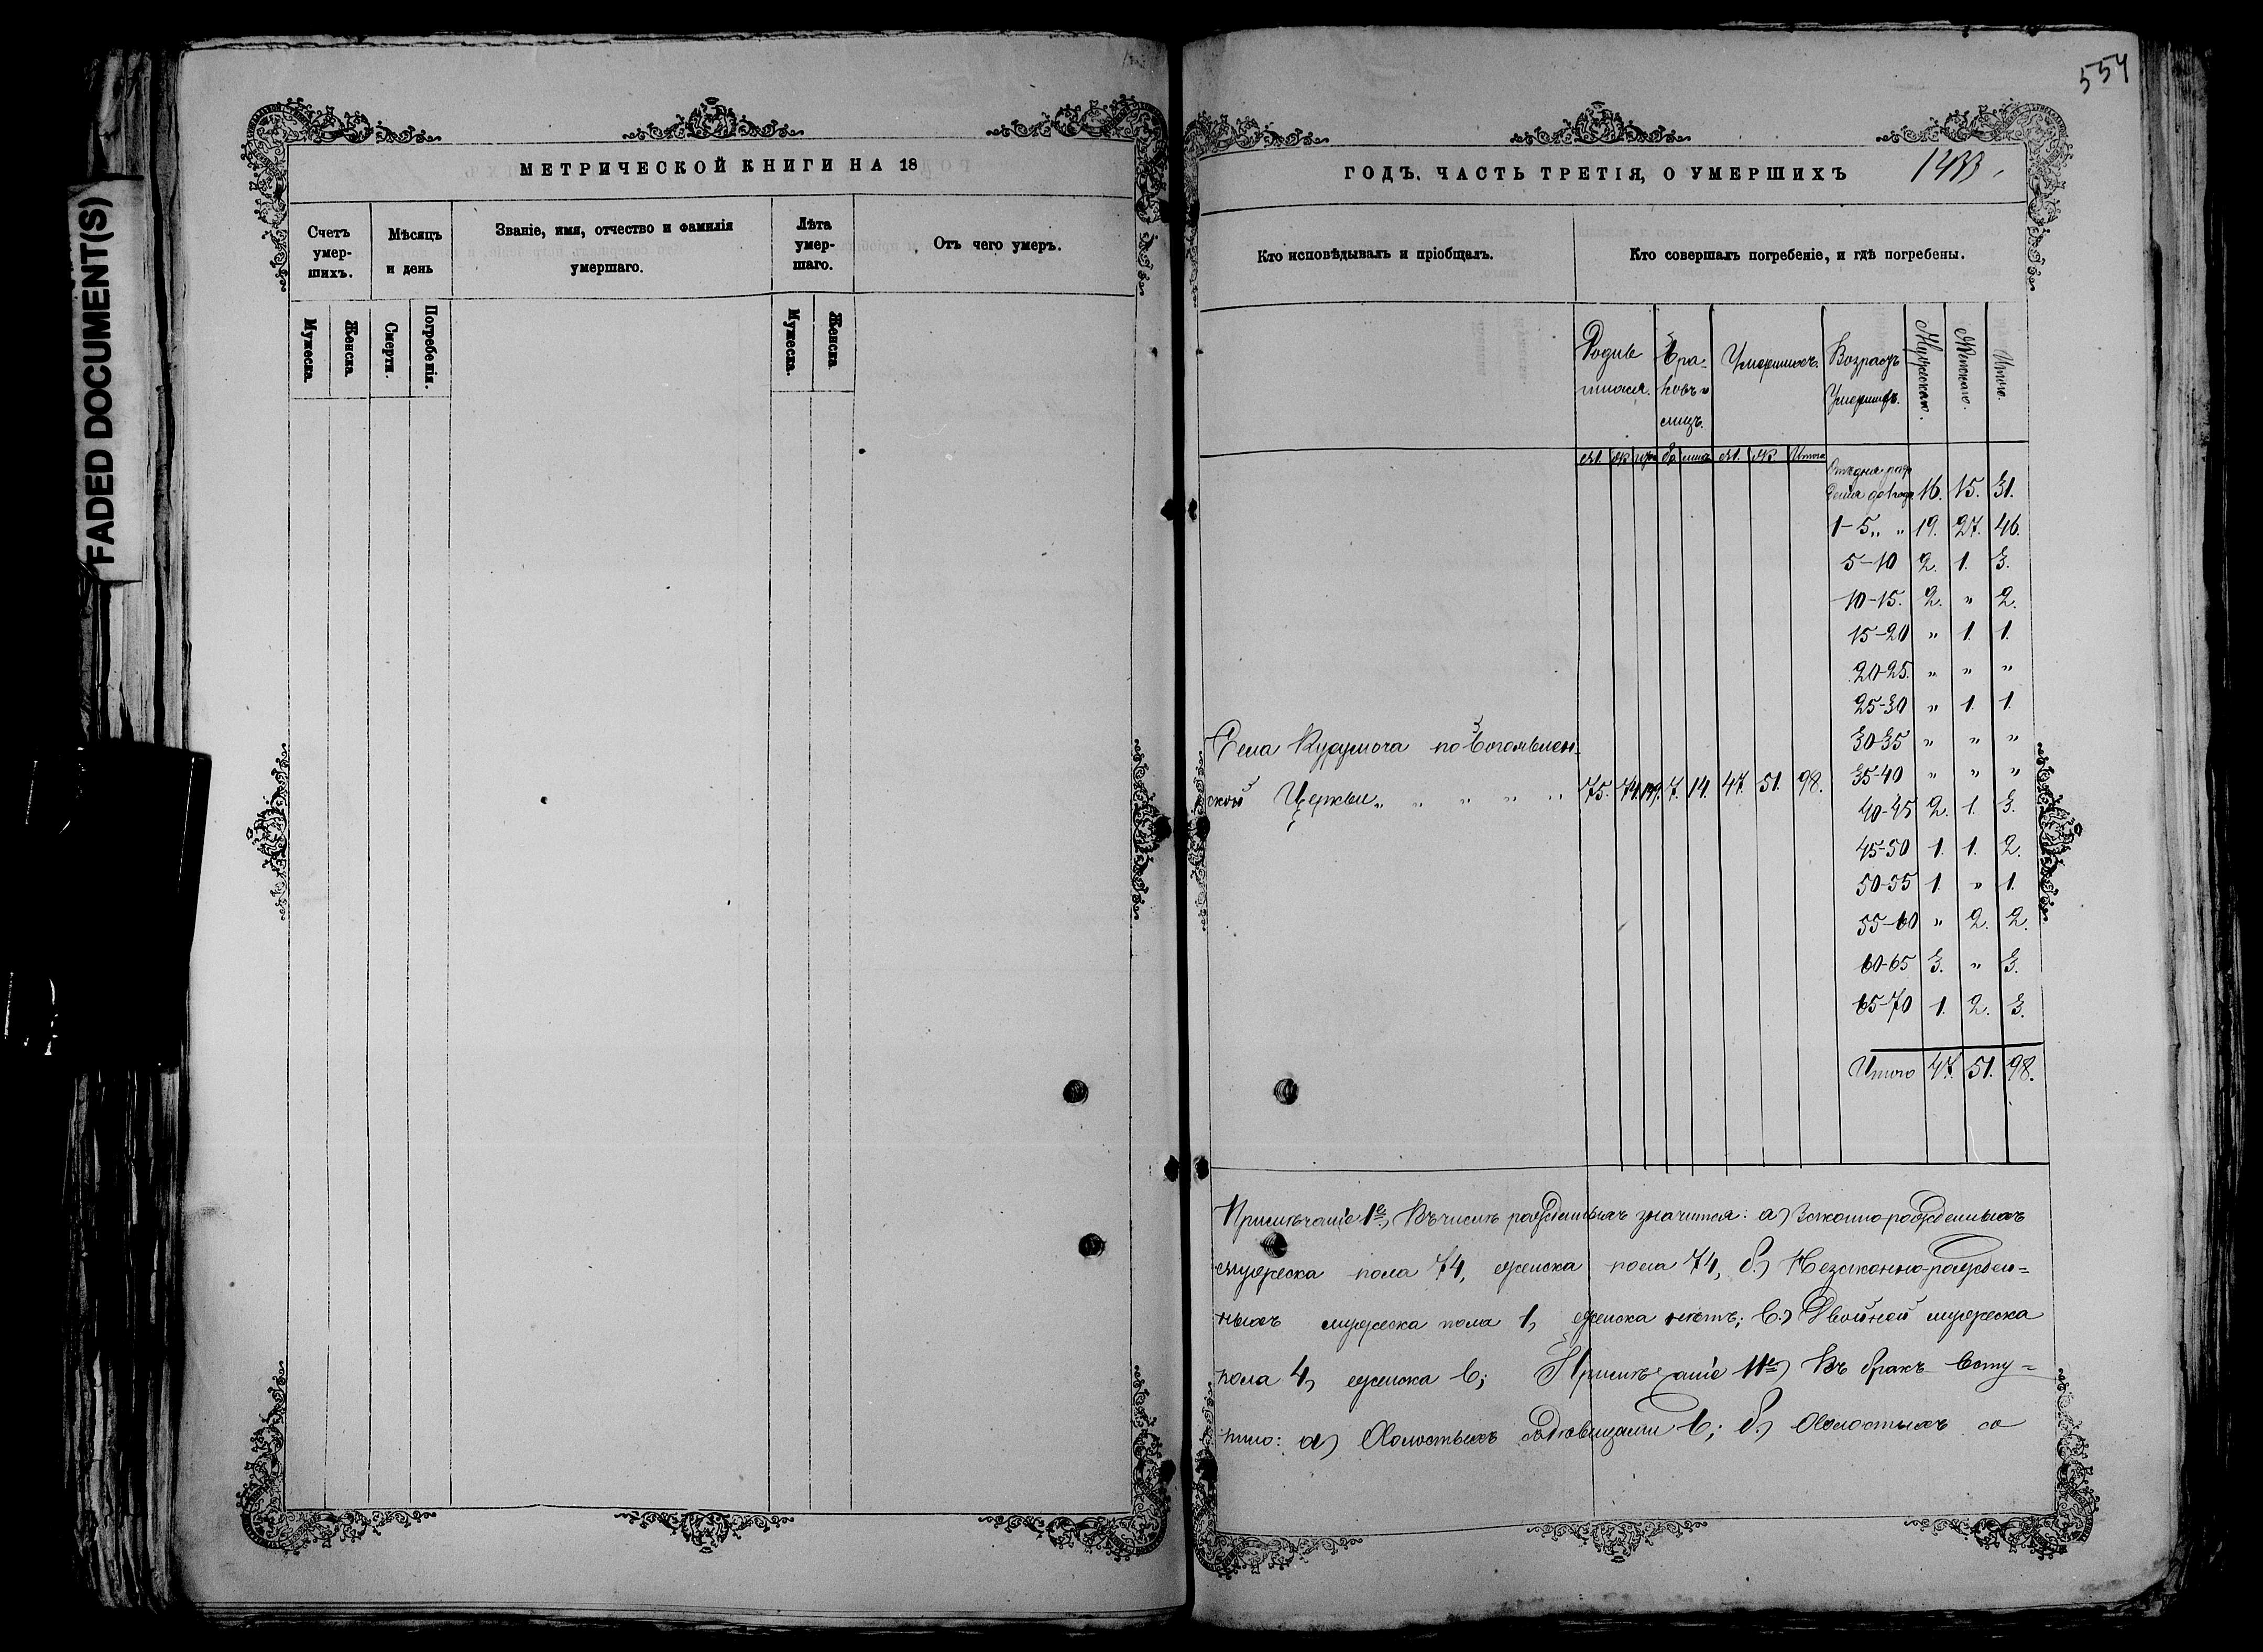 FADED DOCUMENT(S)
МЕТРИЧЕСКОЙ КНИГИ НА 18
Счетъ умер-шихъ.
Мѣсяцъ и день
Званіе, имя, отчество и фамилія умершаго.
Лѣта умер-шаго.
Отъ чего умеръ.
Мужеска.
Женска.
Смерти.
Погребенія.
Мужеска.
Женска.
554
ГОДЪ. ЧАСТЬ ТРЕТІЯ, О УМЕРШИХЪ
Кто исповѣдывалъ и пріобщалъ.
Кто совершалъ погребеніе, и гдѣ погребены.
Родив шихся.
Бра-ковъ и лицъ.
Умершихъ.
Возрастъ Умершихъ.
Мужескаго.
Женскаго.
Итого.
м. ж. бр. лицъ м. ж. Итого
Отъ дня рож
денія до 1 года 16. 15. 31.
1-5 „ „ 19. 27. 46.
5-10 2. 1. 3.
10-15. 2. „ 2.
15-20 „ 1. 1.
20-25. „ „ „
25-30 „ 1. 1.
30-35 „ „ „
Села Курумоча по Богоявлен-
35-40 „ „ „
ской Церкви „ „ „ „ „ 75. 74. 149. 7. 14. 47. 51. 98.
40-45 2. 1. 3.
45-50 1. 1. 2.
50-55 1. „ 1.
55-60 „ 2. 2.
60-65 3. „ 3.
65-70 1. 2. 3.
Итого 47. 51. 98.
Примѣчаніе 1е, Въ числѣ рожденныхъ значится: а) Законно рожденныхъ
мужеска пола 74, женска пола 74, б.) Незаконно-рожден=
ныхъ мужеска пола 1, женска нѣтъ; в.) Двойней мужеска
пола 4, женска 6; Примѣчаніе 11е) Въ бракъ всту=
пило: а) Холостыхъ съ дѣвицами 6; б.) Холостыхъ со